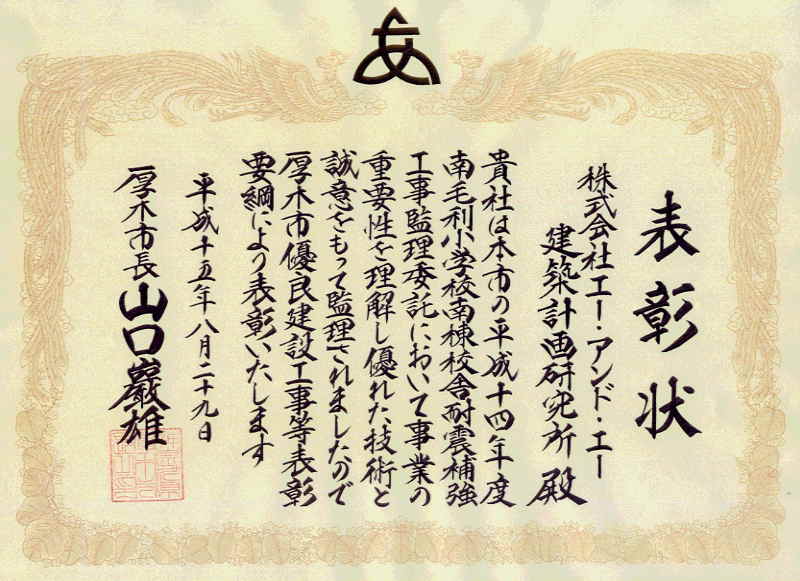 表彰状
株式会社エー・アンド・エー
建築計画研究所 殿
貴社は本市の平成十四年度
南毛利小学校南棟校舎耐震補強
工事監理委託において事業の
重要性を理解し優れた技術と
誠意をもって監理されましたので
厚木市優良建設工事等表彰
要綱により表彰いたします
平成十五年八月二十九日
厚木市長 山口巖雄